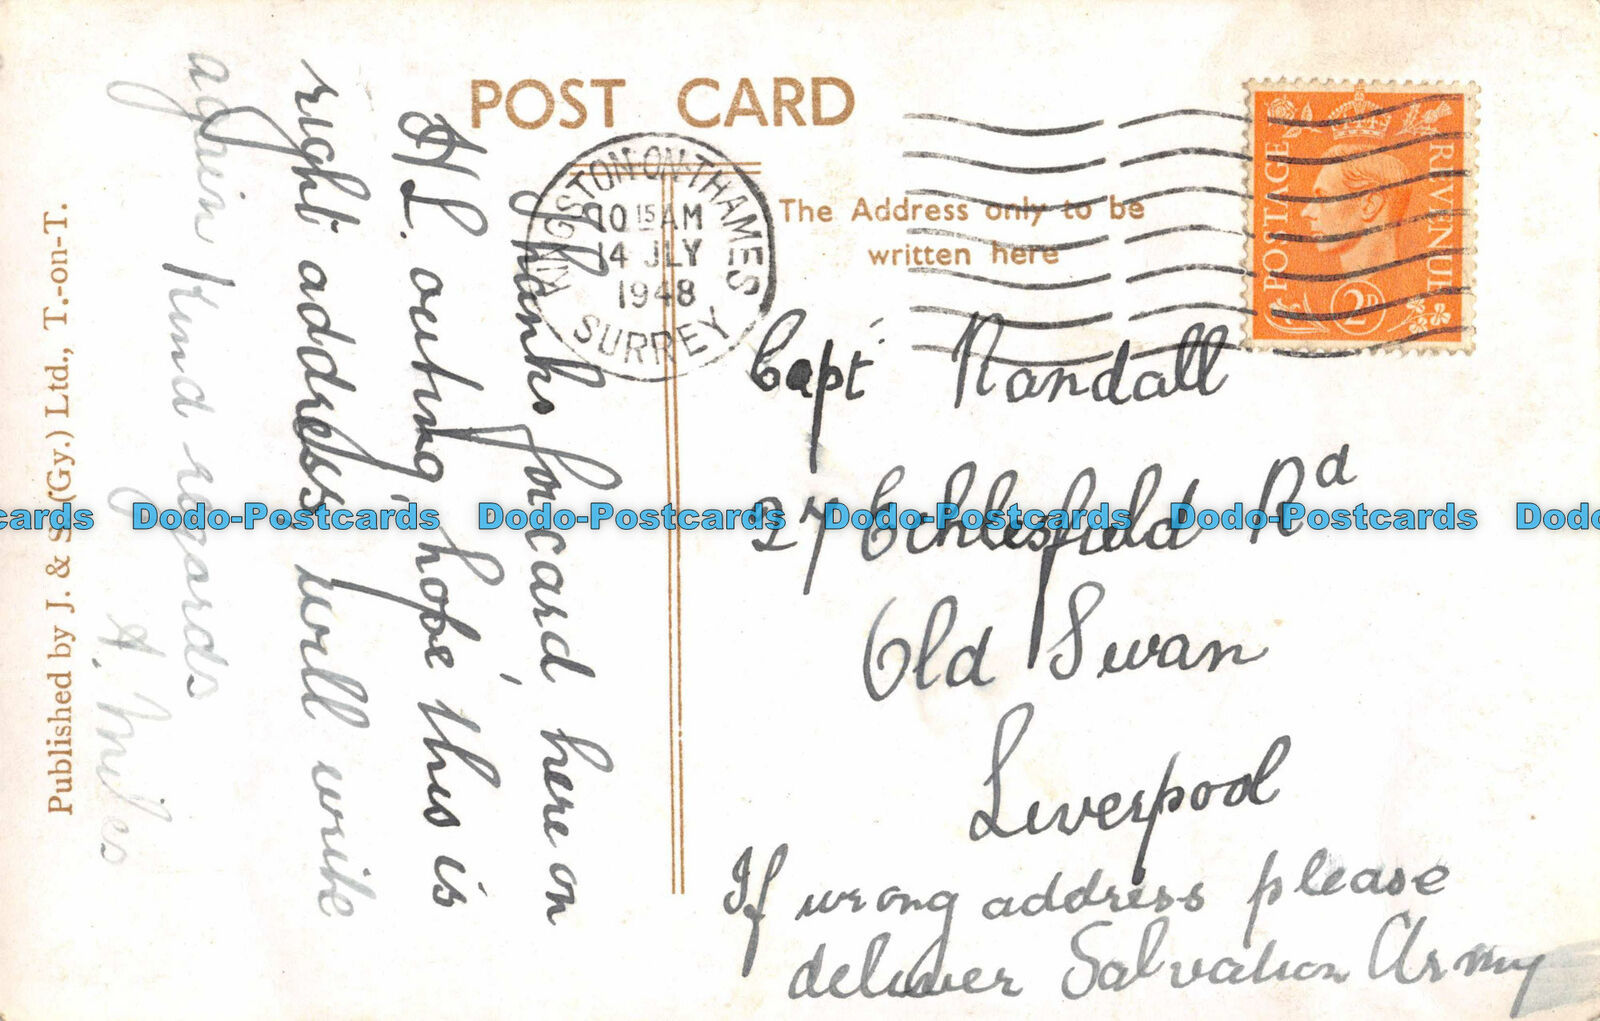 POST CARD
The Address only to be
written here
KINGSTON-ON-THAMES
10 15 AM
14 JLY
1948
SURREY
POSTAGE
REVENUE
2D
Thanks for card here on
H.L. outing, hope this is
right address, will write
again Kind regards
A. Miles
Capt Randall
27 Echlesfield Rd
Old Swan
Liverpool
If wrong address please
deliver Salvation Army
Published by J. & S. (Gy.) Ltd., T.-on-T.
cards Dodo-Postcards Dodo-Postcards Dodo-Postcards Dodo-Postcards Dodo